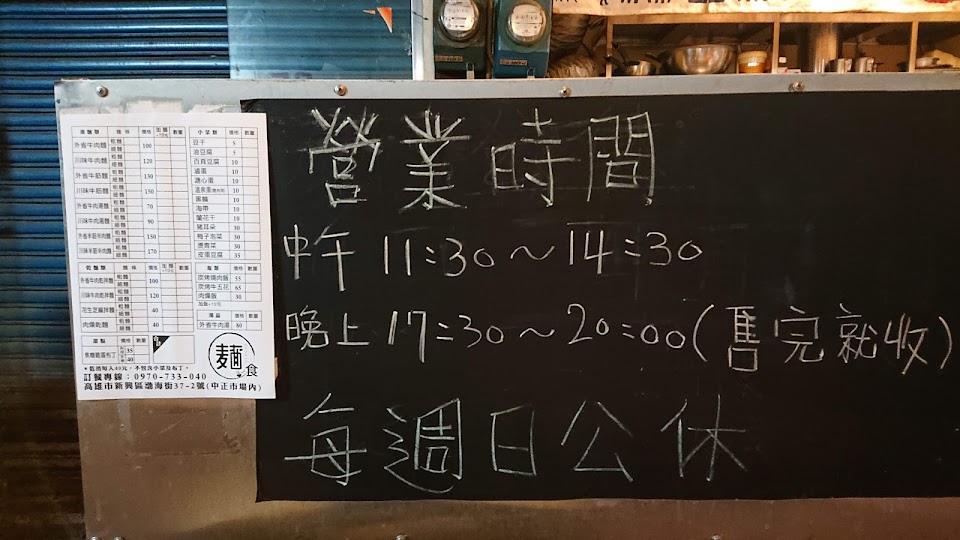 湯麵類 條 格 價格 加麵 +10元 數量
外省牛肉麵 粗麵 細麵 100
川味牛肉麵 粗麵 細麵 120
外省牛筋麵 粗麵 細麵 130
川味牛筋麵 粗麵 細麵 150
外省牛肉湯麵 粗麵 細麵 70
川味牛肉湯麵 粗麵 細麵 90
外省半筋半肉麵 粗麵 細麵 150
川味半筋半肉麵 粗麵 細麵 170
乾麵類 價格 加麵 數量
外省牛肉乾拌麵 粗麵 細麵 100
川味牛肉乾拌麵 粗麵 細麵 120
花生芝麻拌麵 粗麵 細麵 40
肉燥乾麵 粗麵 細麵 40
甜點 價格 數量
焦糖雞蛋布丁 35 40
小菜類 價格 數量
豆干 5
油豆腐 5
百頁豆腐 10
滷蛋 10
溏心蛋 10
溫泉蛋 10
黑輪 10
海帶 10
蘭花干 10
豬耳朵 30
梅子泡菜 30
燙青菜 30
皮蛋豆腐 35
飯類 價格 數量
炭烤燒肉飯 55
炭烤牛五花 65
肉燥飯 30
加飯+10元
湯品 價格 數量
外省牛肉湯 80
麵食
*低消每人40元，不包含小菜及布丁。
訂餐專線：0970-733-040
高雄市新興區渤海街37-2號(中正市場內)
營業時間
中午 11:30～14:30
晚上 17:30～20:00(售完就收)
每週日公休